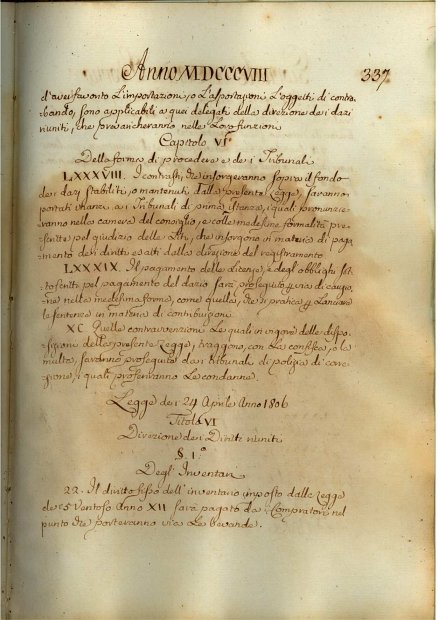 Anno MDCCCVIII 337
d'aver favorito l'importazioni, o l'asportazioni d'oggetti di contra
bando, sono applicabili a quei delegati della direzione dei dazi
riuniti, che forvancheranno nelle loro funzioni
Capitolo VI°
Della forma di procedere e dei Tribunali
LXXXVIII. I contrasti, che insorgeranno sopra il fondo
dei dazi stabiliti, o mantenuti dalla presente Legge, saranno
portati avanti ai Tribunali di prima istanza, i quali pronunzie=
ranno nella camera del consiglio, e colle medesime formalità pre=
scritte pel giudizio delle Liti, che insorgono in materia di paga
mento dei diritti esatti dalla direzione del registramento
LXXXIX. Il pagamento delle licenze, e degli obblighi sot=
toscritti pel pagamento del dazio sarà proseguito per via di coazio,
ne nella medesima forma, come quella, che si pratica per
le sentenze in materia di contribuzioni
XC Quelle contravenzioni le quali in vigore delle dispo=
sizioni della presente Legge, traggono, con la confisca, o la
multa, saranno proseguite dai tribunali di polizia di corre=
zione, i quali proferiranno le condanne.
Legge dei 24 Aprile Anno 1806
Titolo VI
Direzione dei Diritti riuniti
§. I.°
Degl'Inventari
22. Il diritto fisso dell'inventario imposto dalla Legge
de' 5 Ventoso Anno XII sarà pagato da' Compratori nel
punto che porteranno via le bevande.